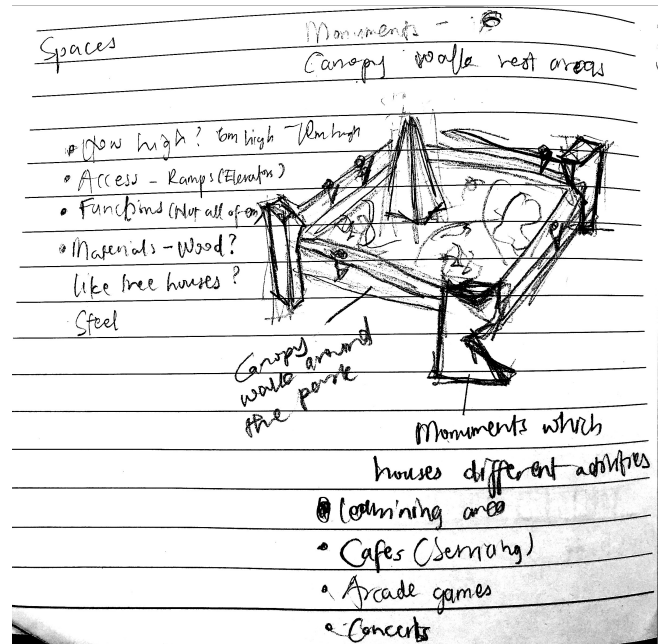 Spaces
Monuments -
Canopy walk rest areas
• How high? 6m high - 10m high
• Access - Ramps (Elevators)
• Functions (Not all of
• Materials - Wood?
like tree houses?
Steel
Canopy
walk around
the park
Monuments which
houses different activities
• Learning area
• Cafes (Serving)
• Arcade games
• Concerts